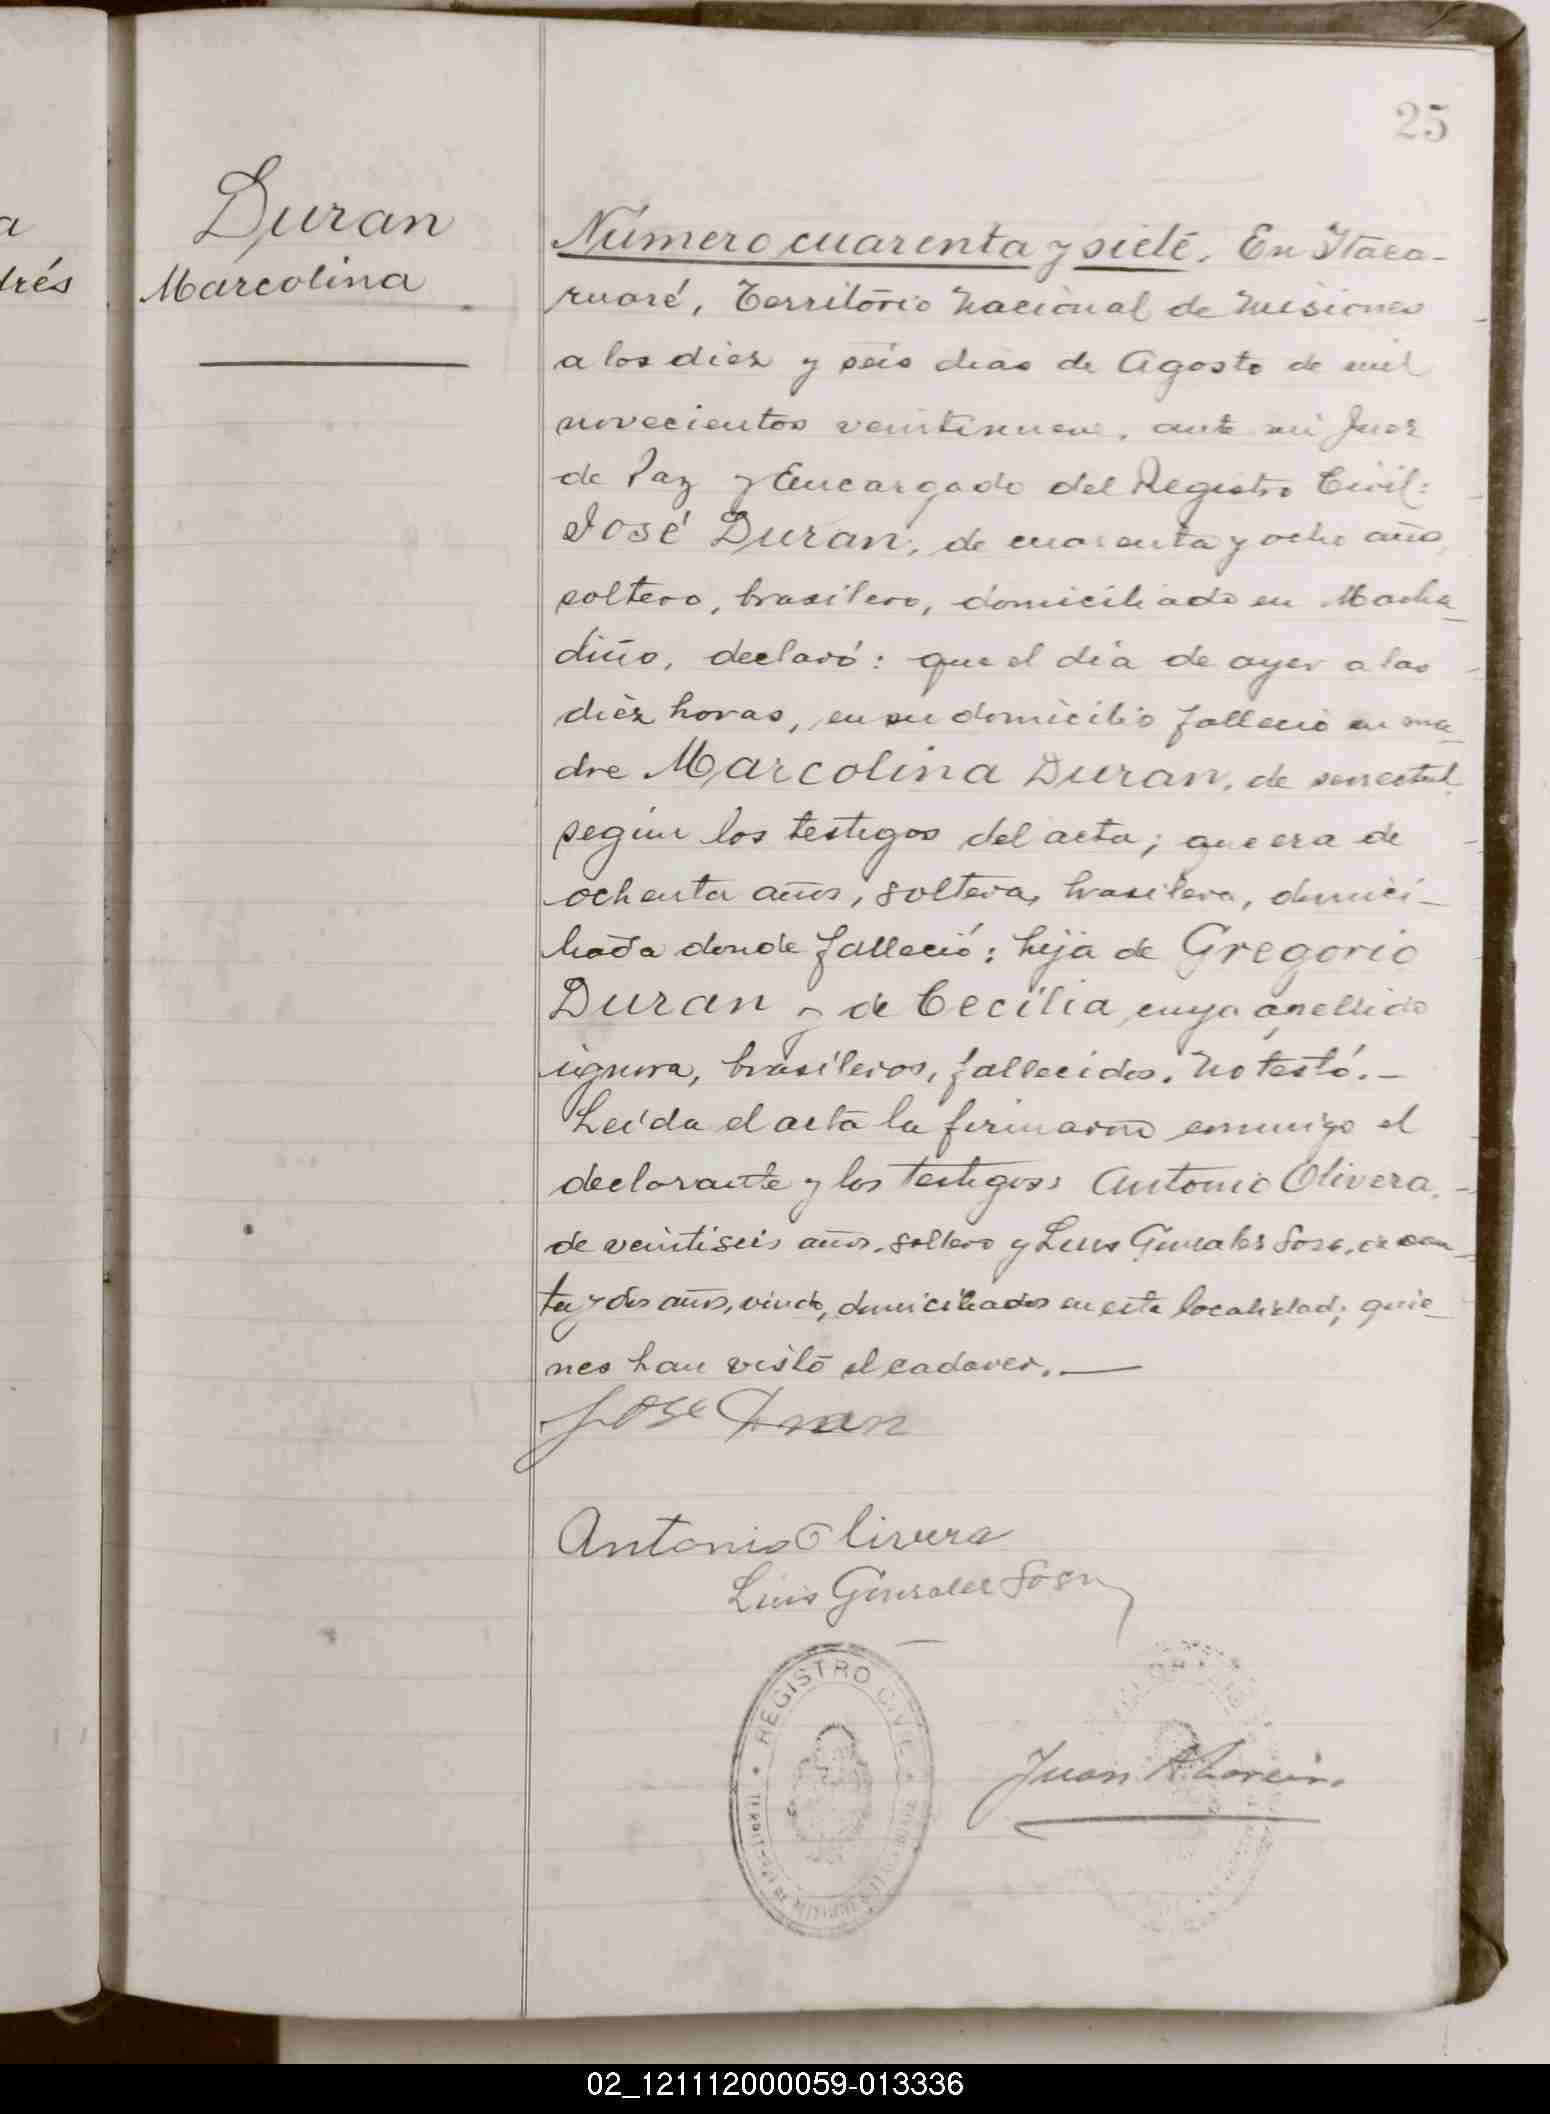 25
a
drés
Duran
Marcolina
Número cuarenta y siete. En Itaca-
ruaré, Territorio Nacional de Misiones
a los diez y seis dias de Agosto de mil
novecientos veintinueve, ante mi Juez
de Paz y Encargado del Registro Civil:
José Duran, de cuarenta y ocho años,
soltero, brasilero, domiciliado en Macha-
diño, declaró: que el dia de ayer a las
diez horas, en su domicilio falleció su ma-
dre Marcolina Duran, de senectud,
según los testigos del acta; que era de
ochenta años, soltera, brasilera, domici-
liada donde falleció; hija de Gregorio
Duran y de Cecilia cuyo apellido
ignora, brasileros, fallecidos. No testó.—
Leída el acta la firmaron conmigo el
declarante y los testigos: Antonio Olivera,
de veintiseis años, soltero y Luis Gonzales Sosa, de
ta y dos años, viudo, domiciliados en esta localidad; quie-
nes han visto el cadaver.—
Jose Duran
Antonio Olivera
Luis Gonzales Sosa
REGISTRO CIVIL
Juan
02_121112000059-013336